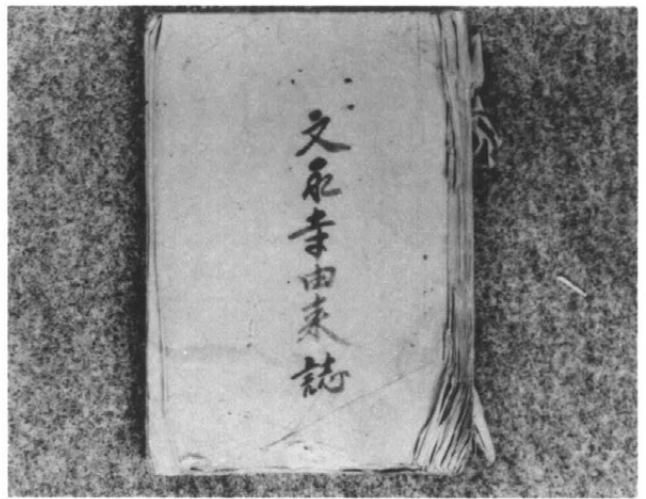 文永寺由来誌